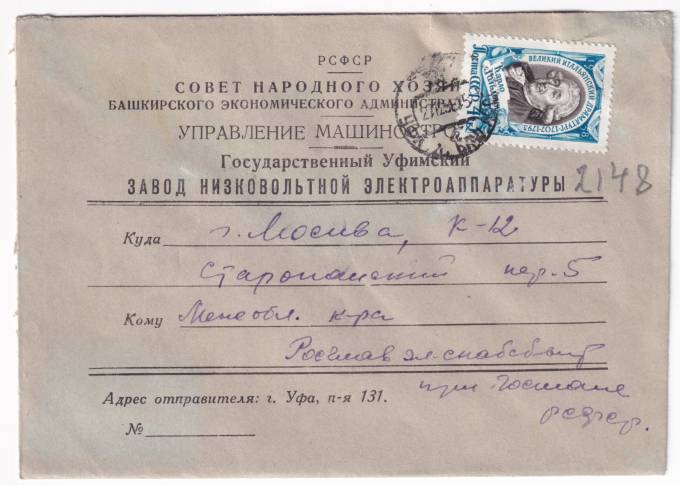 РСФСР
СОВЕТ НАРОДНОГО ХОЗЯЙ
БАШКИРСКОГО ЭКОНОМИЧЕСКОГО АДМИНИСТРА
УПРАВЛЕНИЕ МАШИНОСТРО
Государственный Уфимский
ЗАВОД НИЗКОВОЛЬТНОЙ ЭЛЕКТРОАППАРАТУРЫ
ВЕЛИКИЙ ИТАЛЬЯНСКИЙ ДРАМАТУРГ·1707-1793
Карло
Почта СССР 40к
2148
Куда г. Москва, К-12
Старопанский пер. 5
Кому Межобл. к-ра
Росглавэл-снабсбыт
при Госплане
РСФСР.
Адрес отправителя: г. Уфа, п-я 131.
№